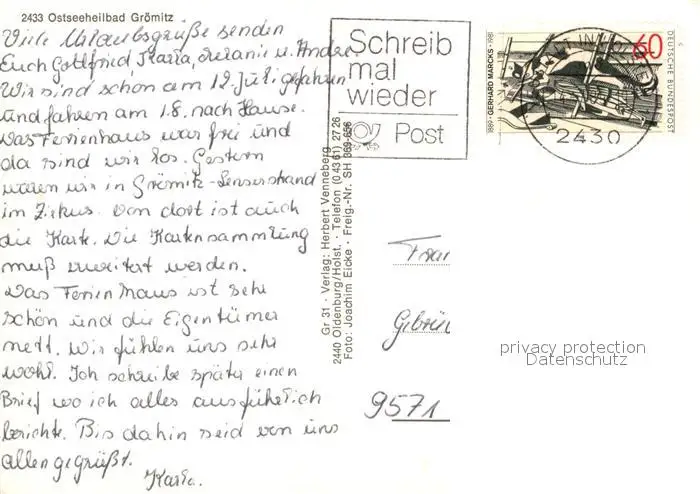 2433 Ostseeheilbad Grömitz
Viele Urlaubsgrüße senden
Euch Gottfried, Karla, Melanie u. Andre.
Wir sind schon am 12. Juli gefahren
und fahren am 1.8. nach Hause.
Das Ferienhaus war frei und
da sind wir los. Gestern
waren wir in Grömitz-Lensterstrand
im Zirkus. Von dort ist auch
die Karte. Die Kartensammlung
muß erweitert werden.
Das Ferienhaus ist sehr
schön und die Eigentümer
nett. Wir fühlen uns sehr
wohl. Ich schreibe später einen
Brief wo ich alles ausführlich
berichte. Bis dahin seid von uns
allen gegrüßt.
Karla.
Gr 31 · Verlag: Herbert Venneberg
2440 Oldenburg/Holst. · Telefon (0 43 61) 27 26
Foto: Joachim Eicke · Freig.-Nr. SH 369-656
Schreib
mal
wieder
Post
1889 · GERHARD MARCKS · 1981
60
DEUTSCHE BUNDESPOST
2430
Frau
9571
privacy protection
Datenschutz